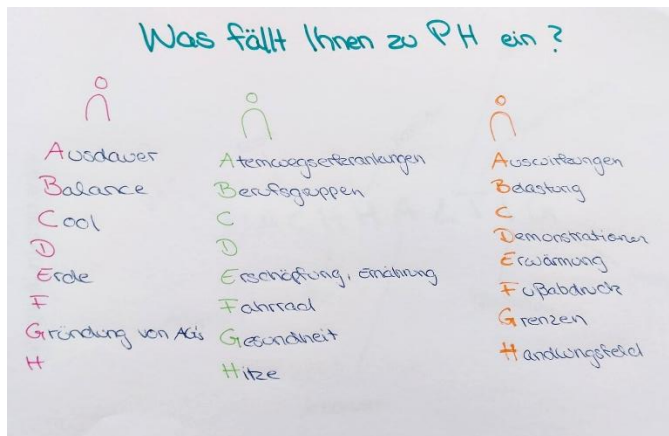 Was fällt Ihnen zu PH ein?
Ausdauer
Balance
Cool
D
Erde
F
Gründung von AG's
H
Atemwegserkrankungen
Berufsgruppen
C
D
Erschöpfung, Ernährung
Fahrrad
Gesundheit
Hitze
Auswirkungen
Belastung
C
Demonstrationen
Erwärmung
Fußabdruck
Grenzen
Handlungsfeld